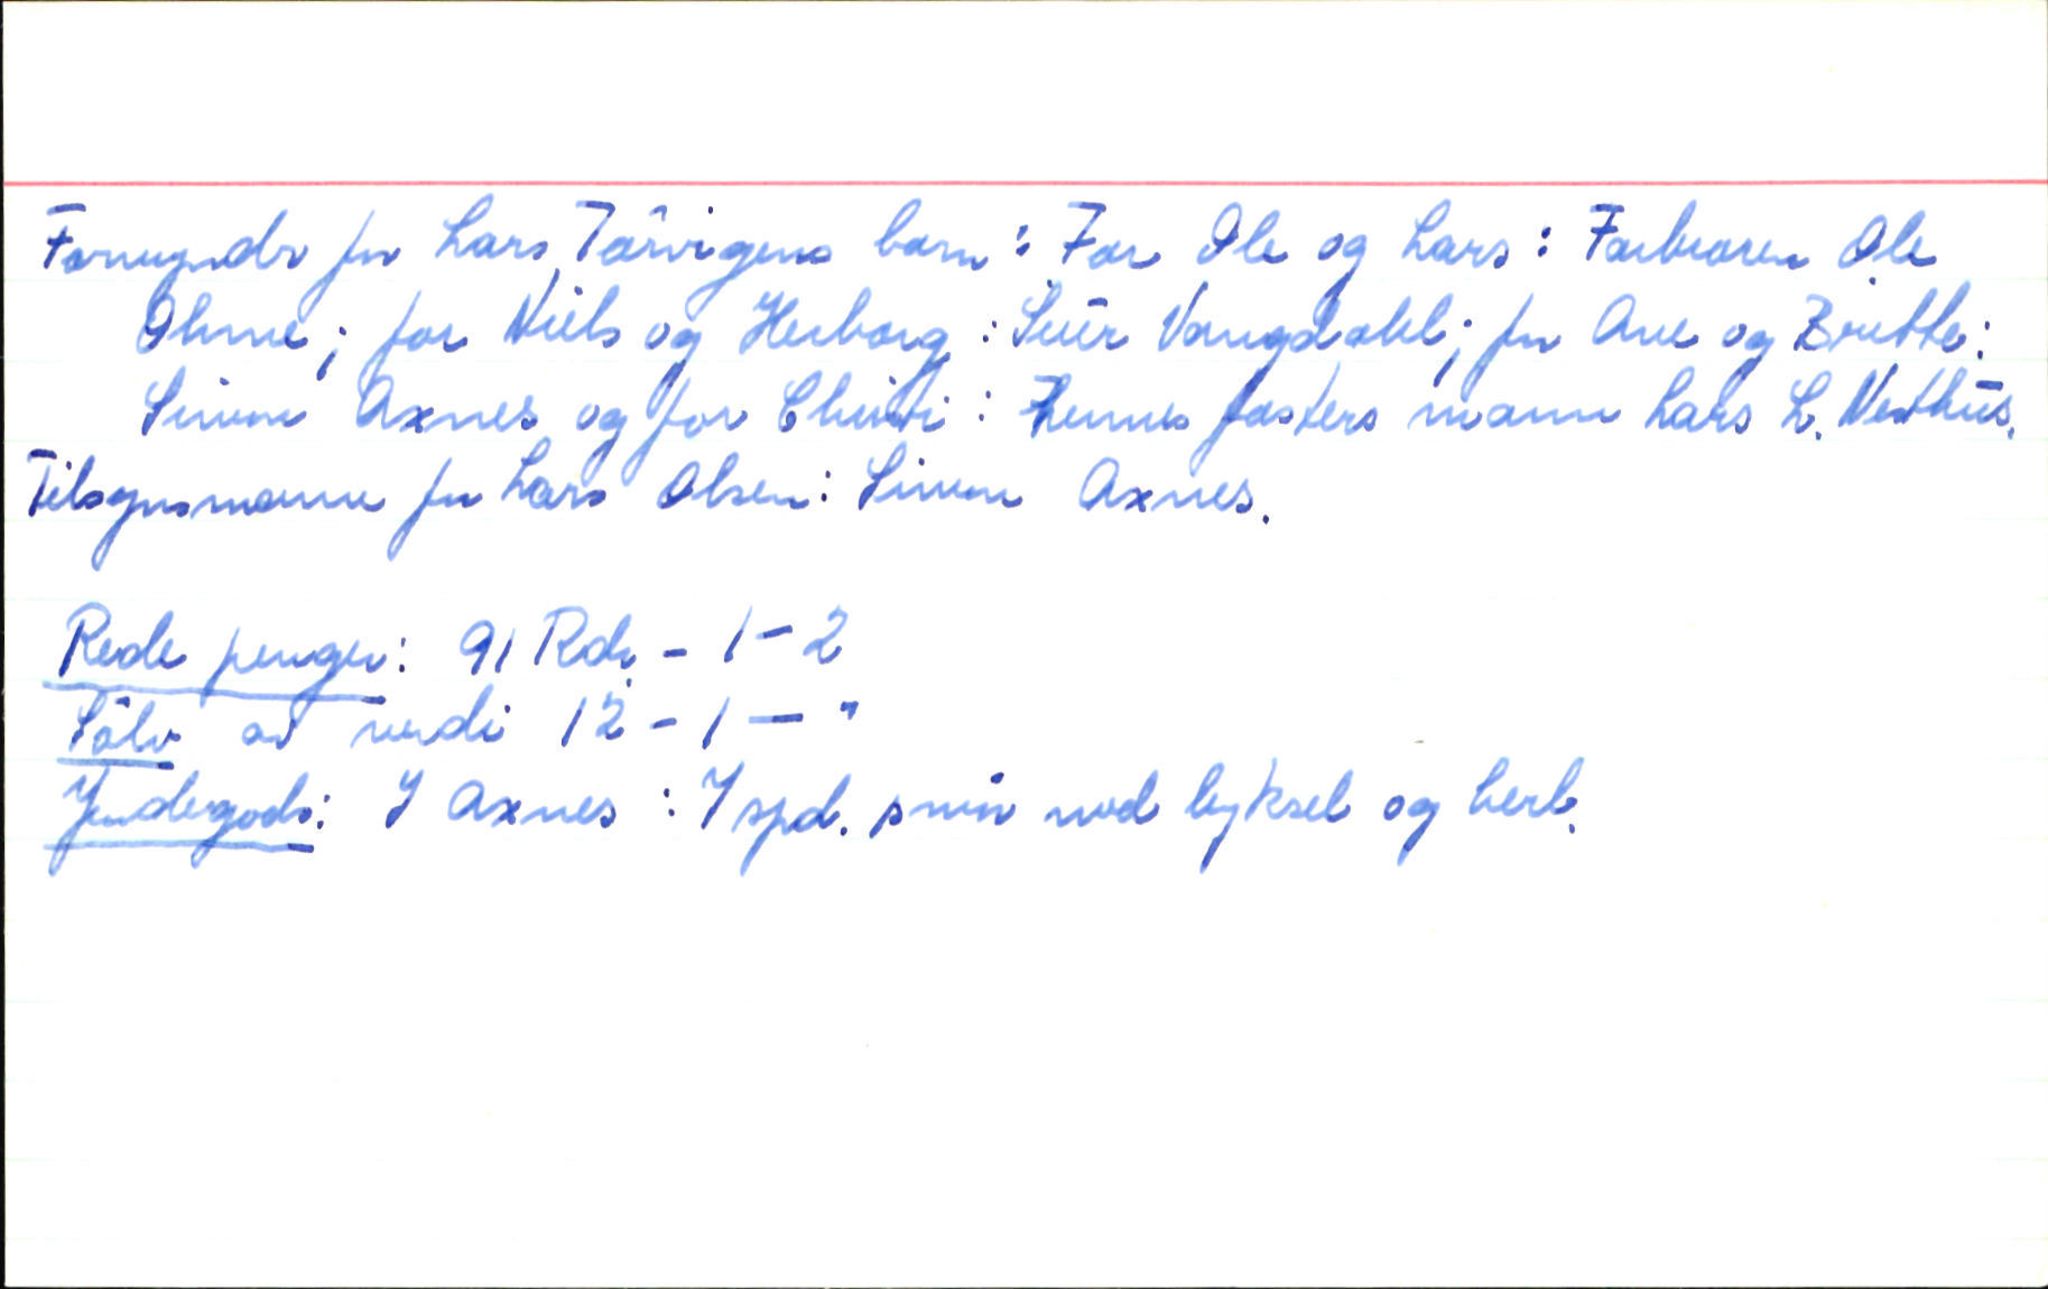 Formyndr for Lars Tørvigens barn: For Ole og Lars: Farbroren Ole
Ohme; for Niels og Herborg: Siur Vangdahl; for Ane og Britte:
Simon Axnes og for Christi: Hennes fasters mann Lars L. Nesthus.
Tilsynsmann for Lars Olsen: Simon Axnes.
Rede penger: 91 Rdr. - 1 - 2
Sølv av verdi 12 - 1 - "
Jordegods: I Axnes: 1 spd. smør med byksel og herl.